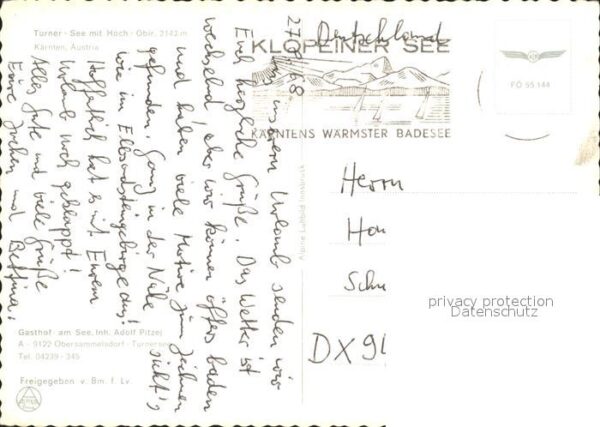 Turner - See mit Hoch - Obir, 2142 m
Kärnten, Austria
Deutschland
KLOPEINER SEE
KÄRNTENS WÄRMSTER BADESEE
PO 55 144
27.8.68
Aus unserem Urlaub senden wir
Euch herzliche Grüße. Das Wetter ist
wechselnd, aber wir können öfters baden
und haben viele Motive zum zeichnen
gefunden. Ganz in der Nähe sieht's
wie im Elbsandsteingebirge aus!
Hoffentlich hat es mit Eurem
Urlaub noch geklappt!
Alles Gute und viele Grüße
Eure Jochen und Bettina.
Alpine Luftbild Innsbruck
Herrn
Han
Schu
DX 91
privacy protection
Datenschutz
Gasthof am See, Inh. Adolf Pitzej
A - 9122 Obersammelsdorf - Turnersee
Tel. 04239 - 345
Freigegeben v. Bm. f. Lv.